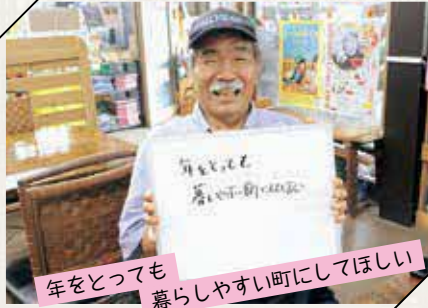 年をとっても
暮しやすい町にしてほしい
年をとっても
暮らしやすい町にしてほしい